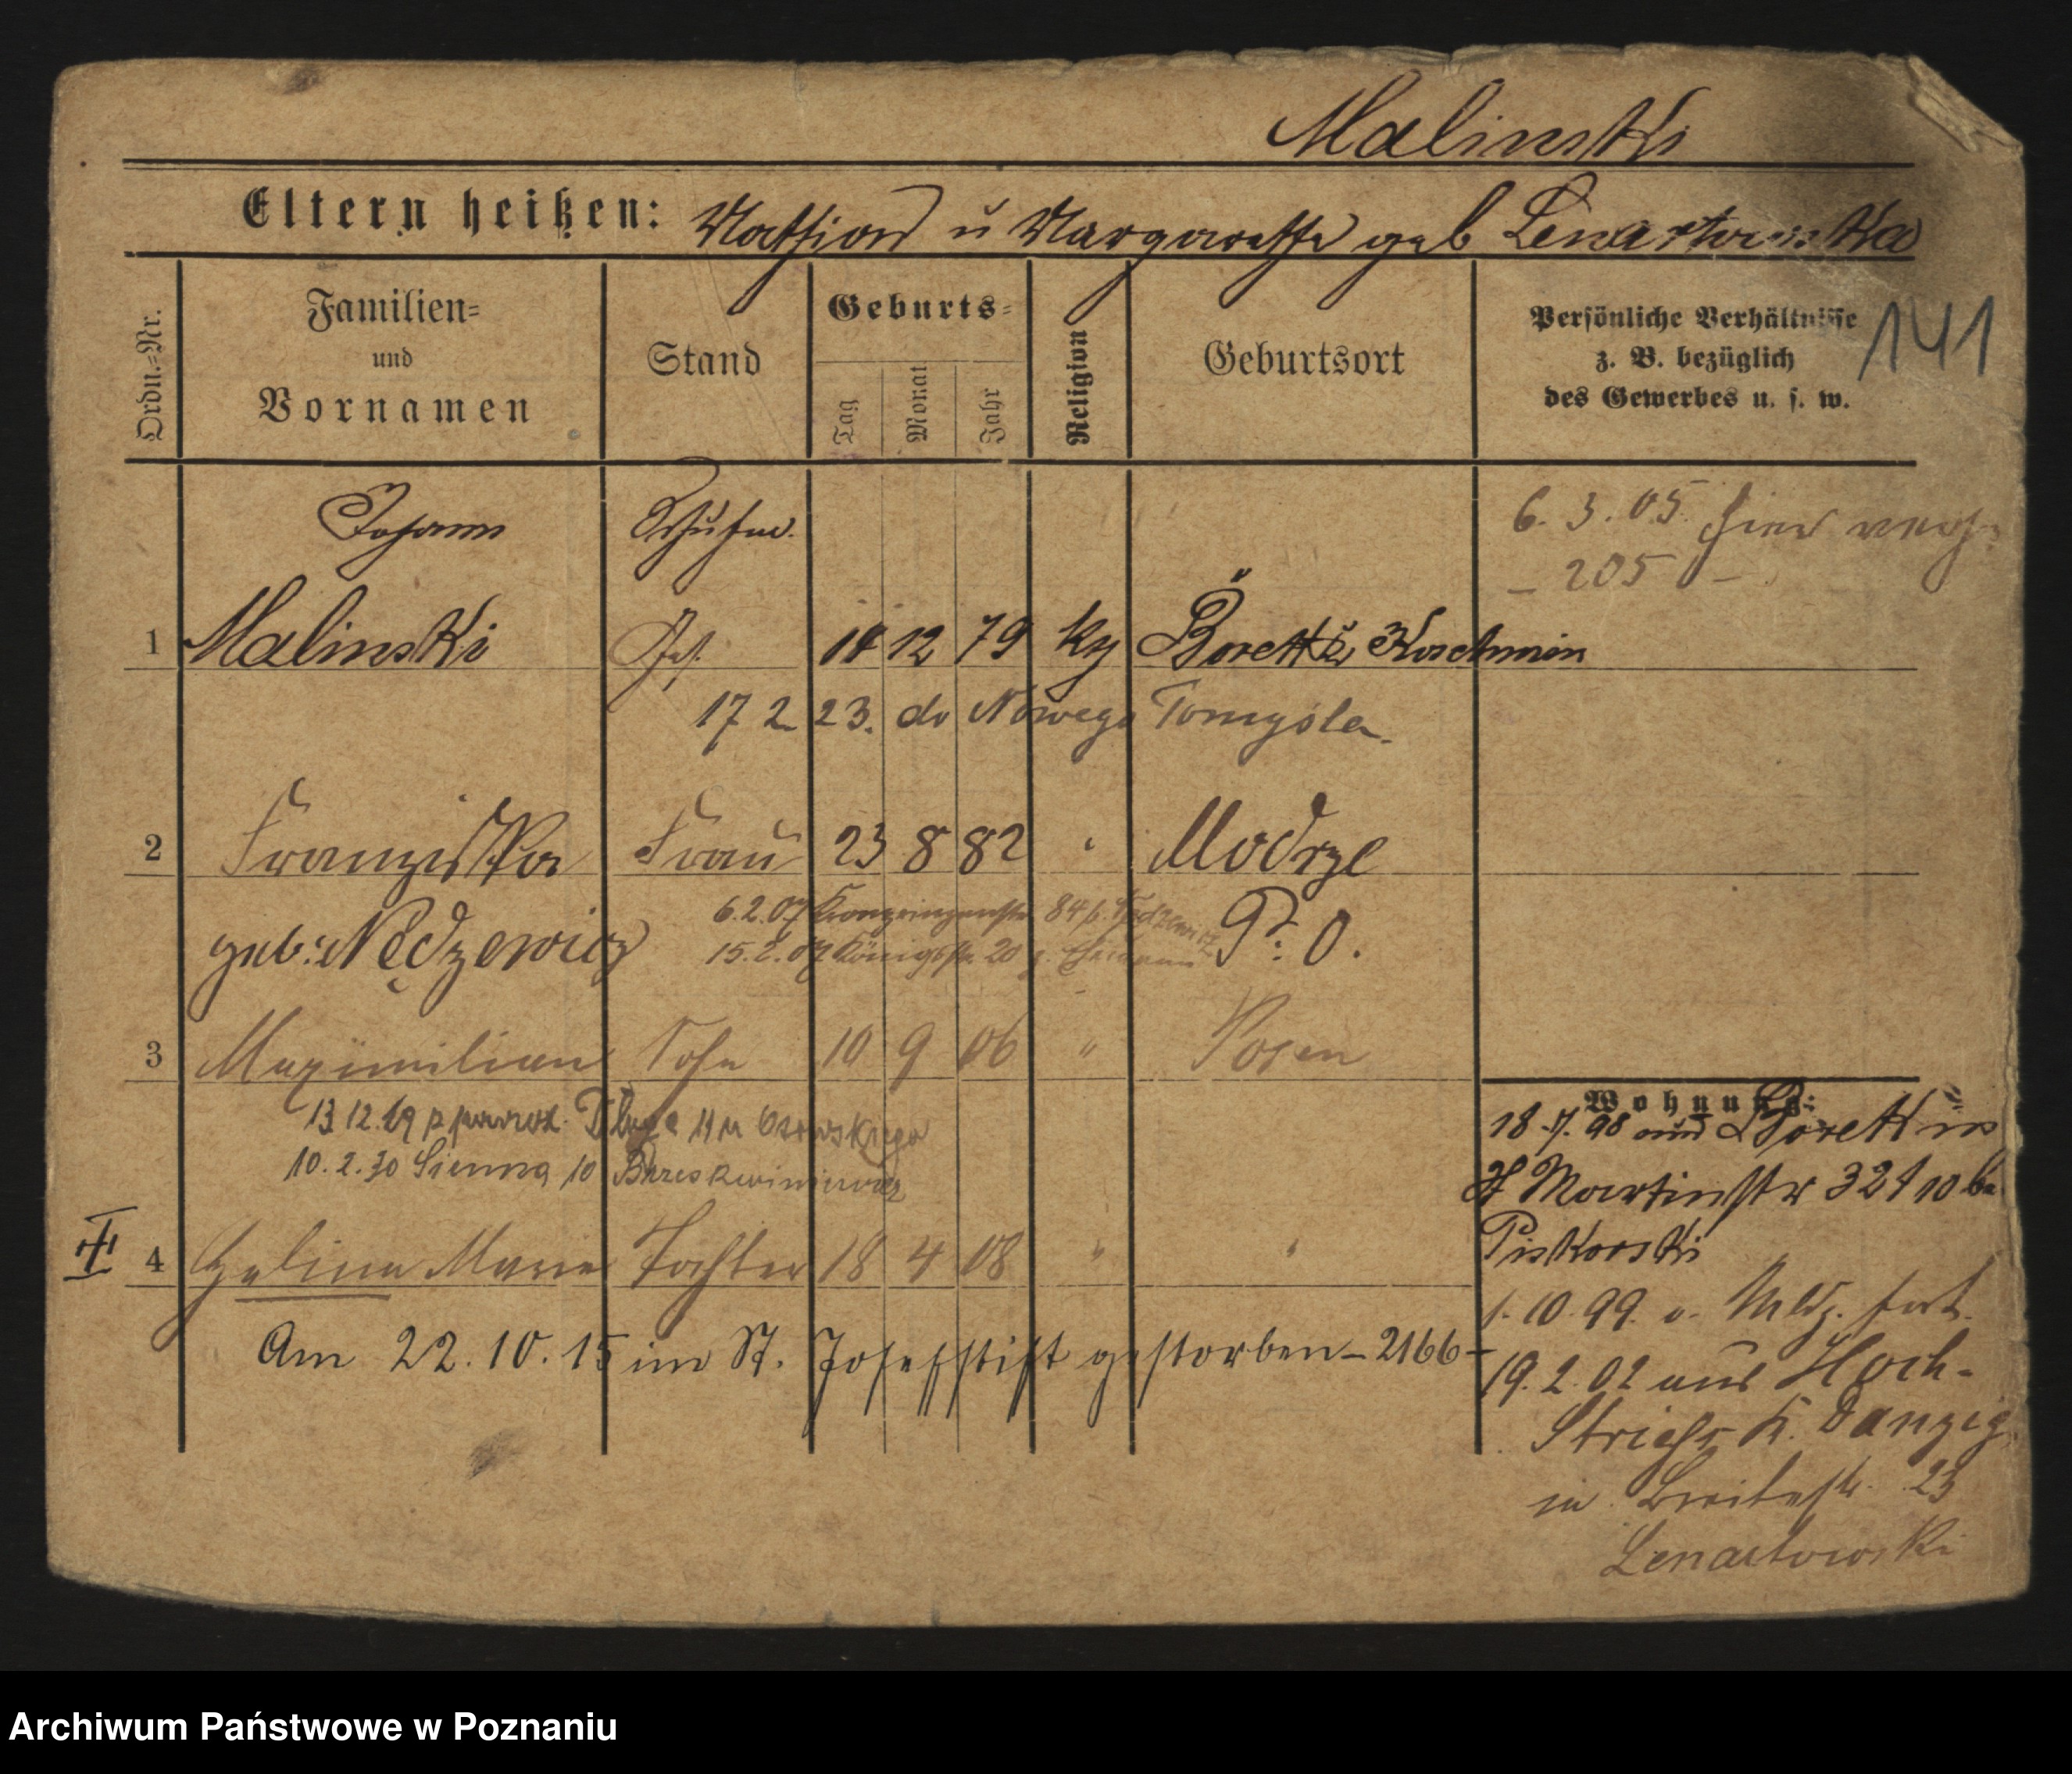 Malinski
Eltern heißen: Mathias u Margarethe geb Lenartowska
Ordn.-Nr.
Familien- und Vornamen
Stand
Geburts-
Tag
Monat
Jahr
Religion
Geburtsort
Persönliche Verhältnisse
z. B. bezüglich
des Gewerbes u. s. w.
141
Johann
6. 3. 05. hier verh.
– 205 –
1 Malinski 14 12 79 Borek Kr Koschmin
17 2 23. do Nowego Tomyśla.
2 Franziska Frau 23 8 82 " Modrze
geb: Nędzewicz P. O.
6.2.07 Kronprinzenstr. 84 b.
15.2.07 Königsstr. 20
3 Maximilian Sohn 10 9 06 " Posen
13 12.19 z powrot. Długa 11 u Ossowskiego
10. 2. 20 Sienna 10
4 Halina Marie Tochter 18 4 08 " "
Am 22. 10. 15 im St. Josefstift gestorben – 2166 –
Wohnung:
18. 7. 98 aus Borek in
St Martinstr 32 b
Piskorski
1. 10. 99. o. Meldg. fort.
19. 2. 02 aus Hoch-
Striess K. Danzig
in Breitestr. 23
Lenartowski
Archiwum Państwowe w Poznaniu